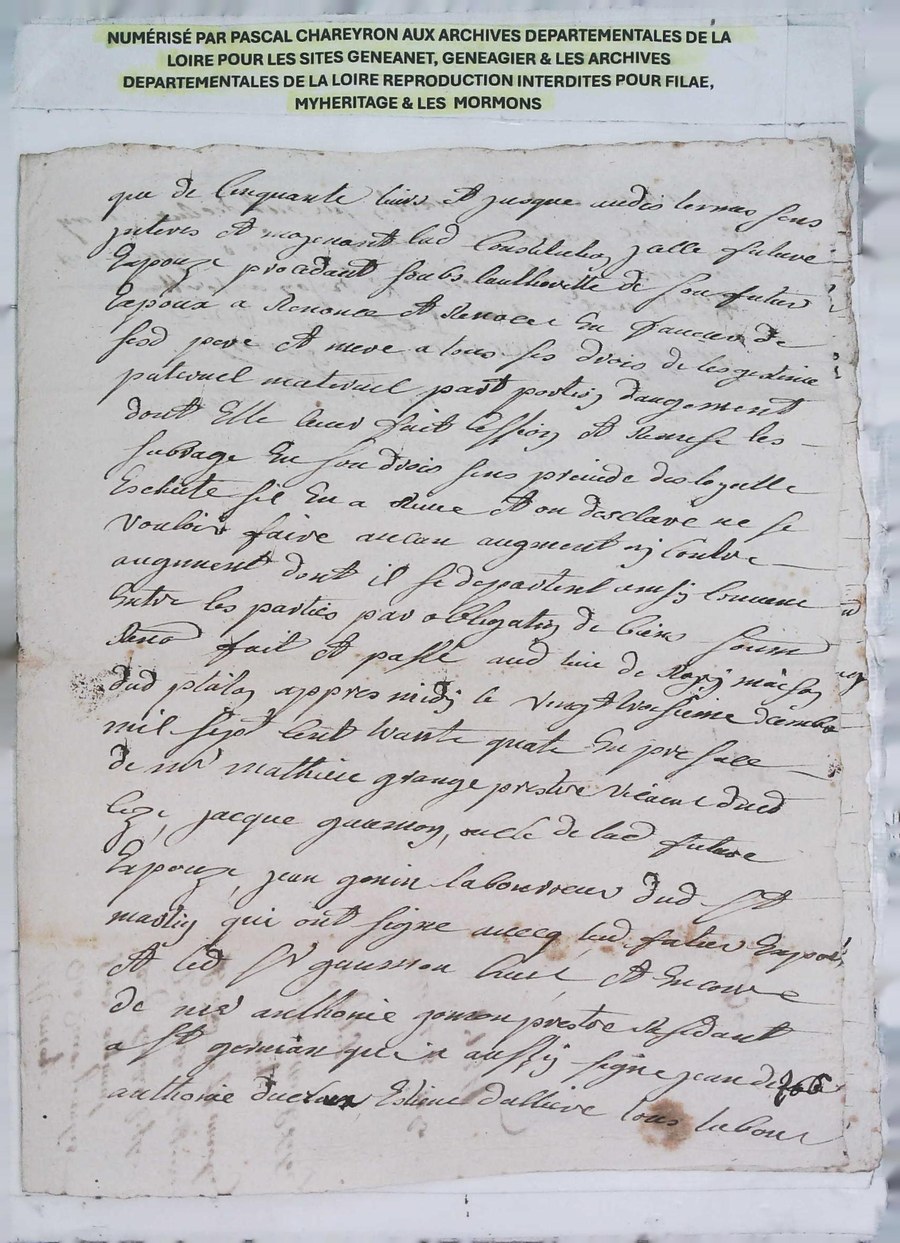 NUMÉRISÉ PAR PASCAL CHAREYRON AUX ARCHIVES DEPARTEMENTALES DE LA
LOIRE POUR LES SITES GENEANET, GENEAGIER & LES ARCHIVES
DEPARTEMENTALES DE LA LOIRE REPRODUCTION INTERDITES POUR FILAE,
MYHERITAGE & LES MORMONS
que de Cinquante livres Et jusque audis termes sens
jnteres Et moyenant lad Constitution jcelle future
Expouze procedant soubs lauthoritte de son futur
Expoux a Renoncé Et Renoce En faveur de
sesd pere Et mere a tous ses drois de legitime
paternel maternel part portion daugement
dont Elle leur fait Cession Et Remise les
subroge En son drois sens prejude des loyalle
Escheute sil En a Et on desclare ne se
vouloir faire aucun augment nj Contre
augment dont il se departent ainsy Convenu
Entre les parties par obligation de biens soum
Reno fait Et passé aud lieu de maison
dud appres midy le vingt troisieme decembre
mil sept Cent trante quatre En presence
de mr mathieu grange prestre vicaire dud
lieu, jacque gaumon, oncle de lad future
Expouze, jean gonin laboureur dud St
martin qui ont signe avecq led futur Expoux
Et led Sr gaumon Curé Et Encorre
de mr anthoine prestre Residant
a St germain qui a aussy signe jean
anthoine Estiene dalliere tous labour